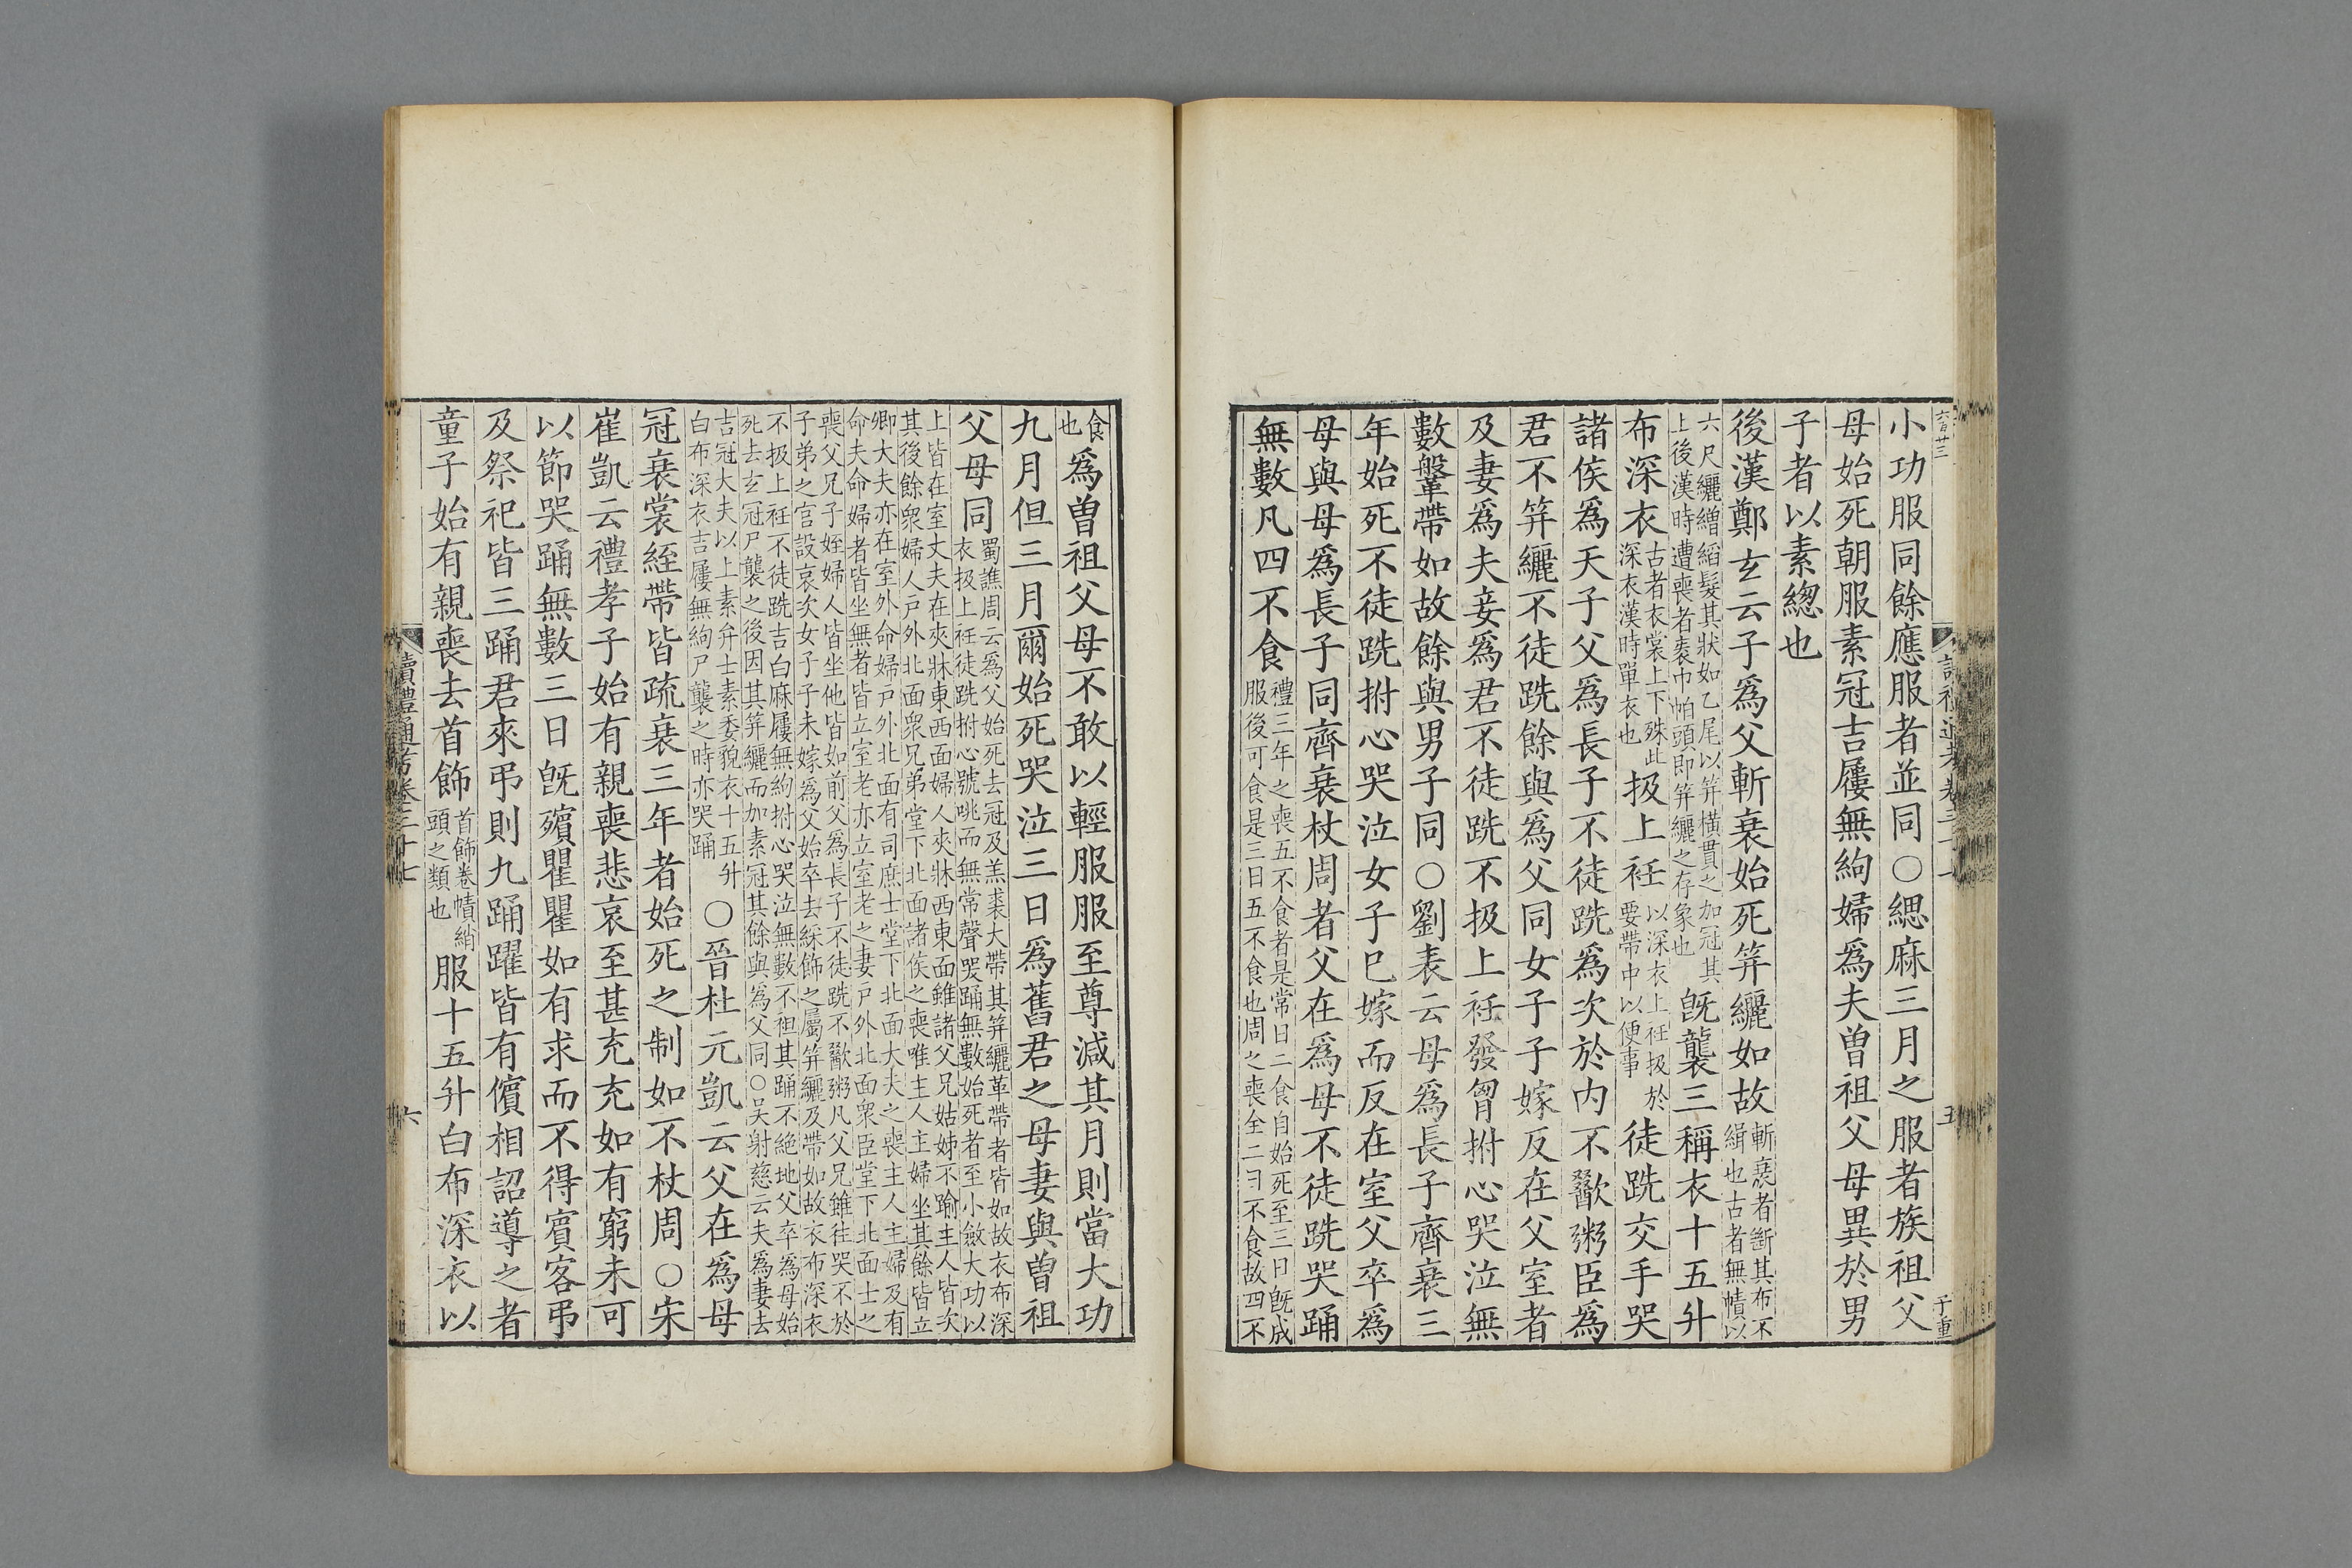 六百廿三
小功服同餘應服者並同○緦麻三月之服者族祖父
母始死朝服素冠吉屨無絇婦爲夫曾祖父母異於男
子者以素緫也
後漢鄭玄云子爲父斬衰始死笄纚如故斬衰者斷其布不緝也古者無幘以
六尺纚繒縚髮其狀如乙尾以笄横貫之加冠其上後漢時遭喪者衺巾帕頭即笄纚之存象也旣襲三稱衣十五升
布深衣古者衣裳上下殊此深衣漢時單衣也扱上衽以深衣上衽扱於要帶中以便事徒跣交手哭
諸侯爲天子父爲長子不徒跣爲次於内不歠粥臣爲
君不笄纚不徒跣餘與爲父同女子子嫁反在父室者
及妻爲夫妾爲君不徒跣不扱上衽發胷拊心哭泣無
數鞶帶如故餘與男子同○劉表云母爲長子齊衰三
年始死不徒跣拊心哭泣女子已嫁而反在室父卒爲
母與母爲長子同齊衰杖周者父在爲母不徒跣哭踊
無數凡四不食禮三年之喪五不食者是常日二食自始死至三日旣成服後可食是三日五不食也周之喪全二日不食故四不
子重
食也爲曾祖父母不敢以輕服服至尊減其月則當大功
九月但三月爾始死哭泣三日爲舊君之母妻與曾祖
父母同蜀譙周云爲父始死去冠及羔裘大帶其笄纚革帶者皆如故衣布深衣扱上衽徒跣拊心號咷而無常聲哭踊無數始死者至小斂大功以
上皆在室丈夫在夾牀東西面婦人夾牀西東面雖諸父兄姑姊不踰主人皆次其後餘衆婦人戶外北面衆兄弟堂下北面諸侯之喪唯主人主婦坐其餘皆立
卿大夫亦在室外命婦戶外北面有司庶士堂下北面大夫之喪主人主婦及有命夫命婦者皆坐無者皆立室老亦立室老之妻戶外北面衆臣堂下北面士之
喪父兄子姪婦人皆坐他皆如前父爲長子不徒跣不歠粥凡父兄雖往哭不於子弟之官設哀次女子子未嫁爲父始卒去綵飾之屬笄纚及帶如故衣布深衣
不扱上衽不徒跣吉白麻屨無絇拊心哭泣無數不袒其踊不絶地父卒爲母始死去玄冠尸襲之後因其笄纚而加素冠其餘與爲父同○吴射慈云夫爲妻去
吉冠大夫以上素弁士素委貌衣十五升白布深衣吉屨無絇尸襲之時亦哭踊○晉杜元凱云父在爲母
冠衰裳絰帶皆疏衰三年者始死之制如不杖周○宋
崔凱云禮孝子始有親喪悲哀至甚充充如有窮未可
以節哭踊無數三日旣殯瞿瞿如有求而不得賓客弔
及祭祀皆三踊君來弔則九踊躍皆有儐相詔導之者
童子始有親喪去首飾首飾卷幘綃頭之類也服十五升白布深衣以
讀禮通考卷三十七
六